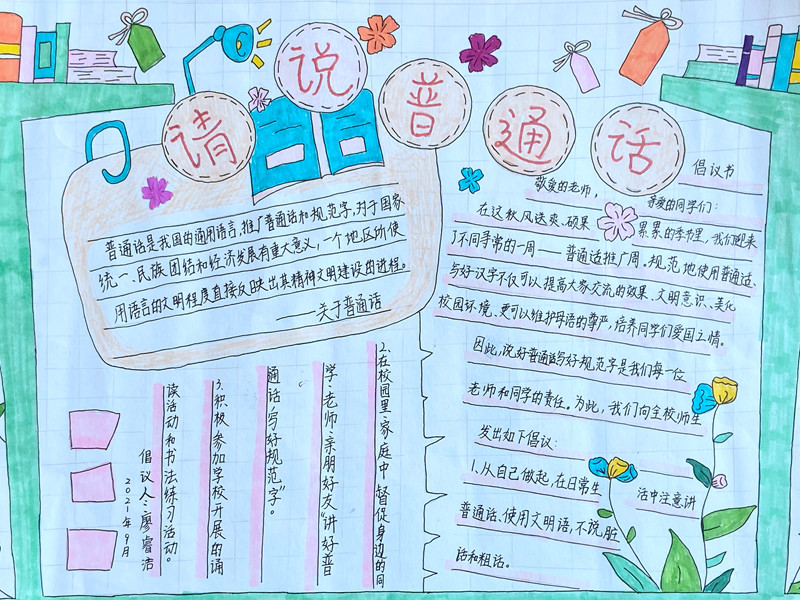 请说普通话
普通话是我国的通用语言,推广普通话和规范字,对于国家
统一、民族团结和经济发展有重大意义,一个地区的使
用语言的文明程度直接反映出其精神文明建设的进程。
——关于普通话
倡议书
敬爱的老师, 亲爱的同学们:
在这秋风送爽、硕果累累的季节里,我们迎来
了不同寻常的一周——普通话推广周。规范地使用普通话、
与好汉字不仅可以提高大家交流的效果、文明意识、美化
校园环境、更可以维护母语的尊严,培养同学们爱国之情。
因此,说好普通话与好规范字是我们每一位
老师和同学的责任。为此,我们向全校师生
发出如下倡议:
1.从自己做起,在日常生活中注意讲
普通话、使用文明语,不说脏
话和粗话。
2.在校园里、家庭中督促身边的同
学、老师、亲朋好友“讲好普
通话,写好规范字”。
3.积极参加学校开展的诵
读活动和书法练习活动。
倡议人:廖睿洁
2021年9月